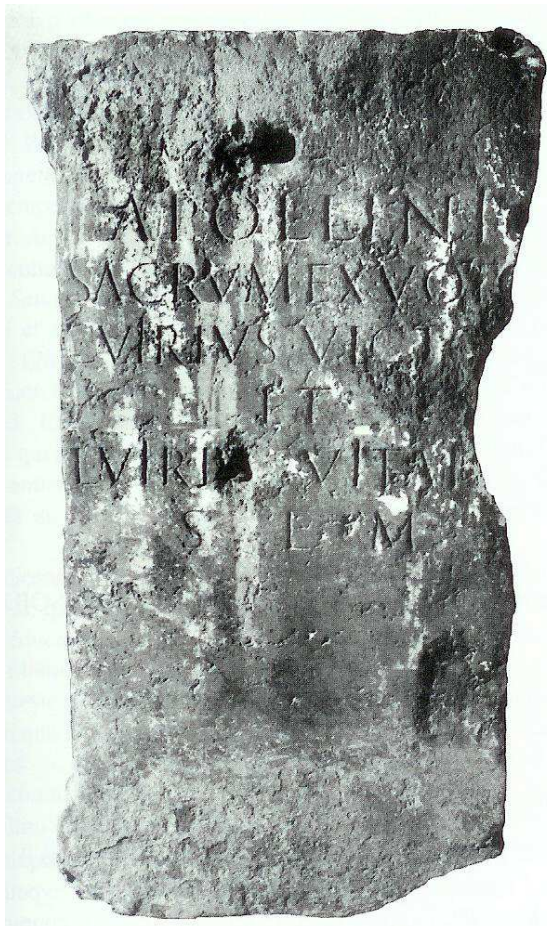 APOLLINI
SACRVM EX VOTO
C VIRIVS VICT
ET
L VIRI VITAL
S L M